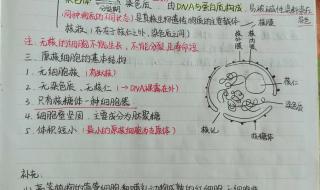 染色质 由DNA与蛋白质构成
同种物质的不同状态) 是真核生物遗传物质的主要载体
核液 (存在于核仁之外、染色质之间)
注: 无核的细胞不能生长,不能分裂且寿命短
三、原核细胞的基本结构
1. 无细胞核 (有拟核)
2. 无染色质、无核仁 → DNA裸露在外
3. 只有核糖体一种细胞器
4. 细胞壁坚固,主要成分为肽聚糖
5. 体积较小 (最小的原核细胞为支原体)
补充:
核膜
外膜
内膜
核仁
染色质
核孔
核糖体